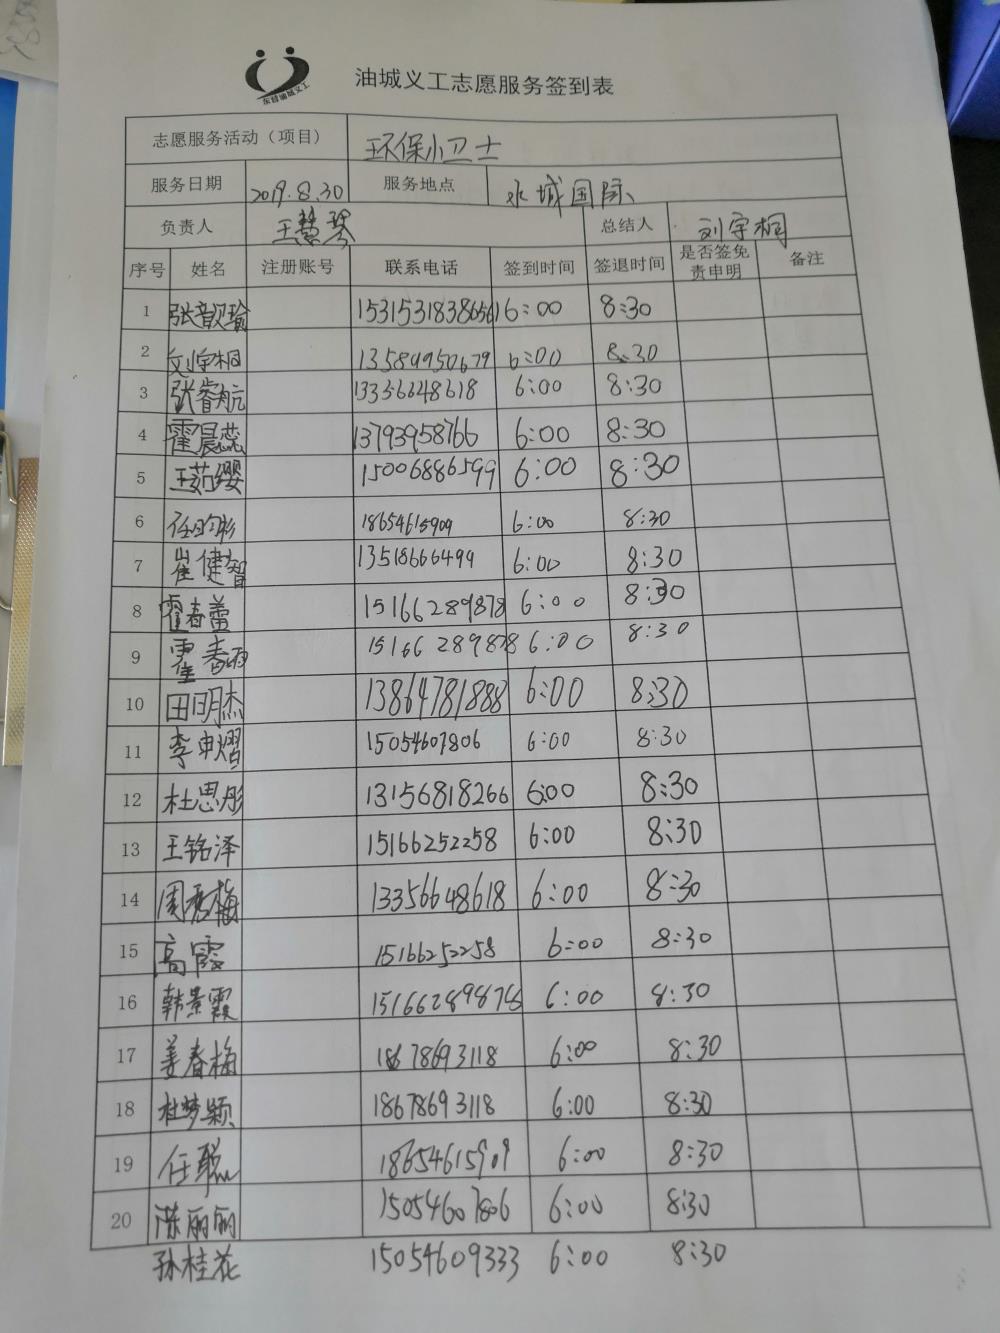 东营油城义工
油城义工志愿服务签到表
志愿服务活动（项目） 环保小卫士
服务日期 2019.8.30 服务地点 水城国际
负责人 王慧琴 总结人 刘宇桐
序号 姓名 注册账号 联系电话 签到时间 签退时间 是否签免责申明 备注
1 张歆瑜 6:00 8:30
2 刘宇桐 13589950679 6:00 8:30
3 张睿航 13356648618 6:00 8:30
4 霍晨蕊 13793958766 6:00 8:30
5 王茹缨 15006886599 6:00 8:30
6 任昀杉 18654615909 6:00 8:30
7 崔健智 13518666499 6:00 8:30
8 霍春蕾 15166289878 6:00 8:30
9 霍春雨 15166289878 6:00 8:30
10 田明杰 13864781888 6:00 8:30
11 李申熠 15054607806 6:00 8:30
12 杜思彤 13156818266 6:00 8:30
13 王铭泽 15166252258 6:00 8:30
14 周秀梅 13356648618 6:00 8:30
15 高霞 15166252258 6:00 8:30
16 韩景霞 15166289878 6:00 8:30
17 姜春梅 18678693118 6:00 8:30
18 杜梦颖 18678693118 6:00 8:30
19 任聪 18654615909 6:00 8:30
20 陈丽丽 15054607806 6:00 8:30
孙桂花 15054609333 6:00 8:30